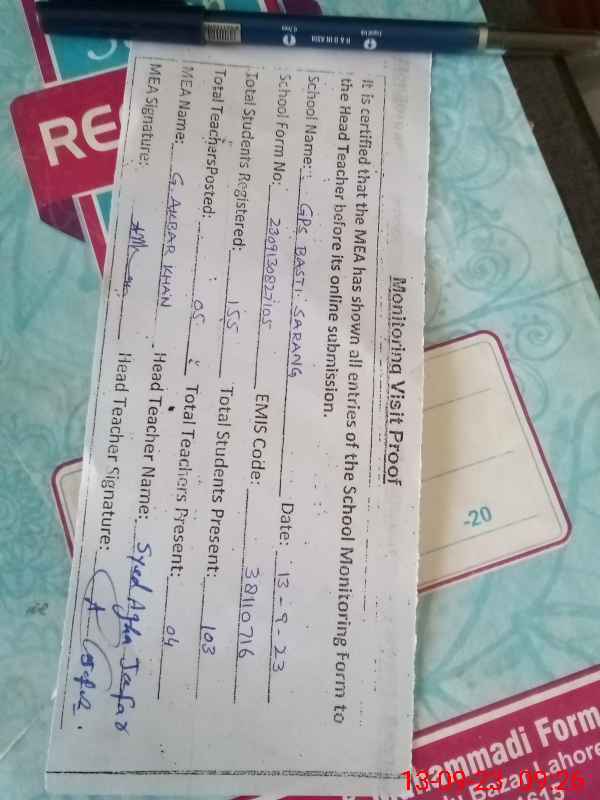 Monitoring Visit Proof
It is certified that the MEA has shown all entries of the School Monitoring Form to
the Head Teacher before its online submission.
School Name: GPS BASTI SARANG Date: 13-9-23
School Form No: 2309130827105 EMIS Code: 38110716
Total Students Registered: 155 Total Students Present: 103
Total TeachersPosted: 05 Total Teachers Present: 04
MEA Name: G. AKBAR KHAN Head Teacher Name: Syed Agha Jaafar
MEA Signature: Head Teacher Signature:
RE
-20
ammadi Form
Bazar Lahore
13-09-23 09:26